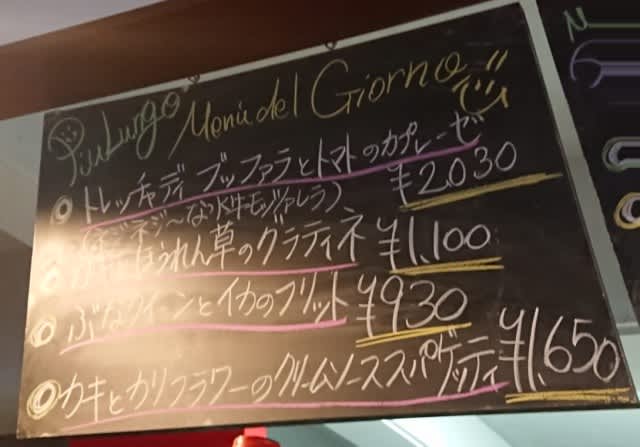 Piu Lungo Menu del Giorno
◎ トレッチャ ディ ブッファラとトマトのカプレーゼ
(ネジネジ〜なっ水牛モッツァレラ) ¥2.030
ほうれん草のグラティネ ¥1,100
◎ とイカのフリット ¥930
◎ カキとカリフラワーのクリームソーススパゲッティ ¥1,650